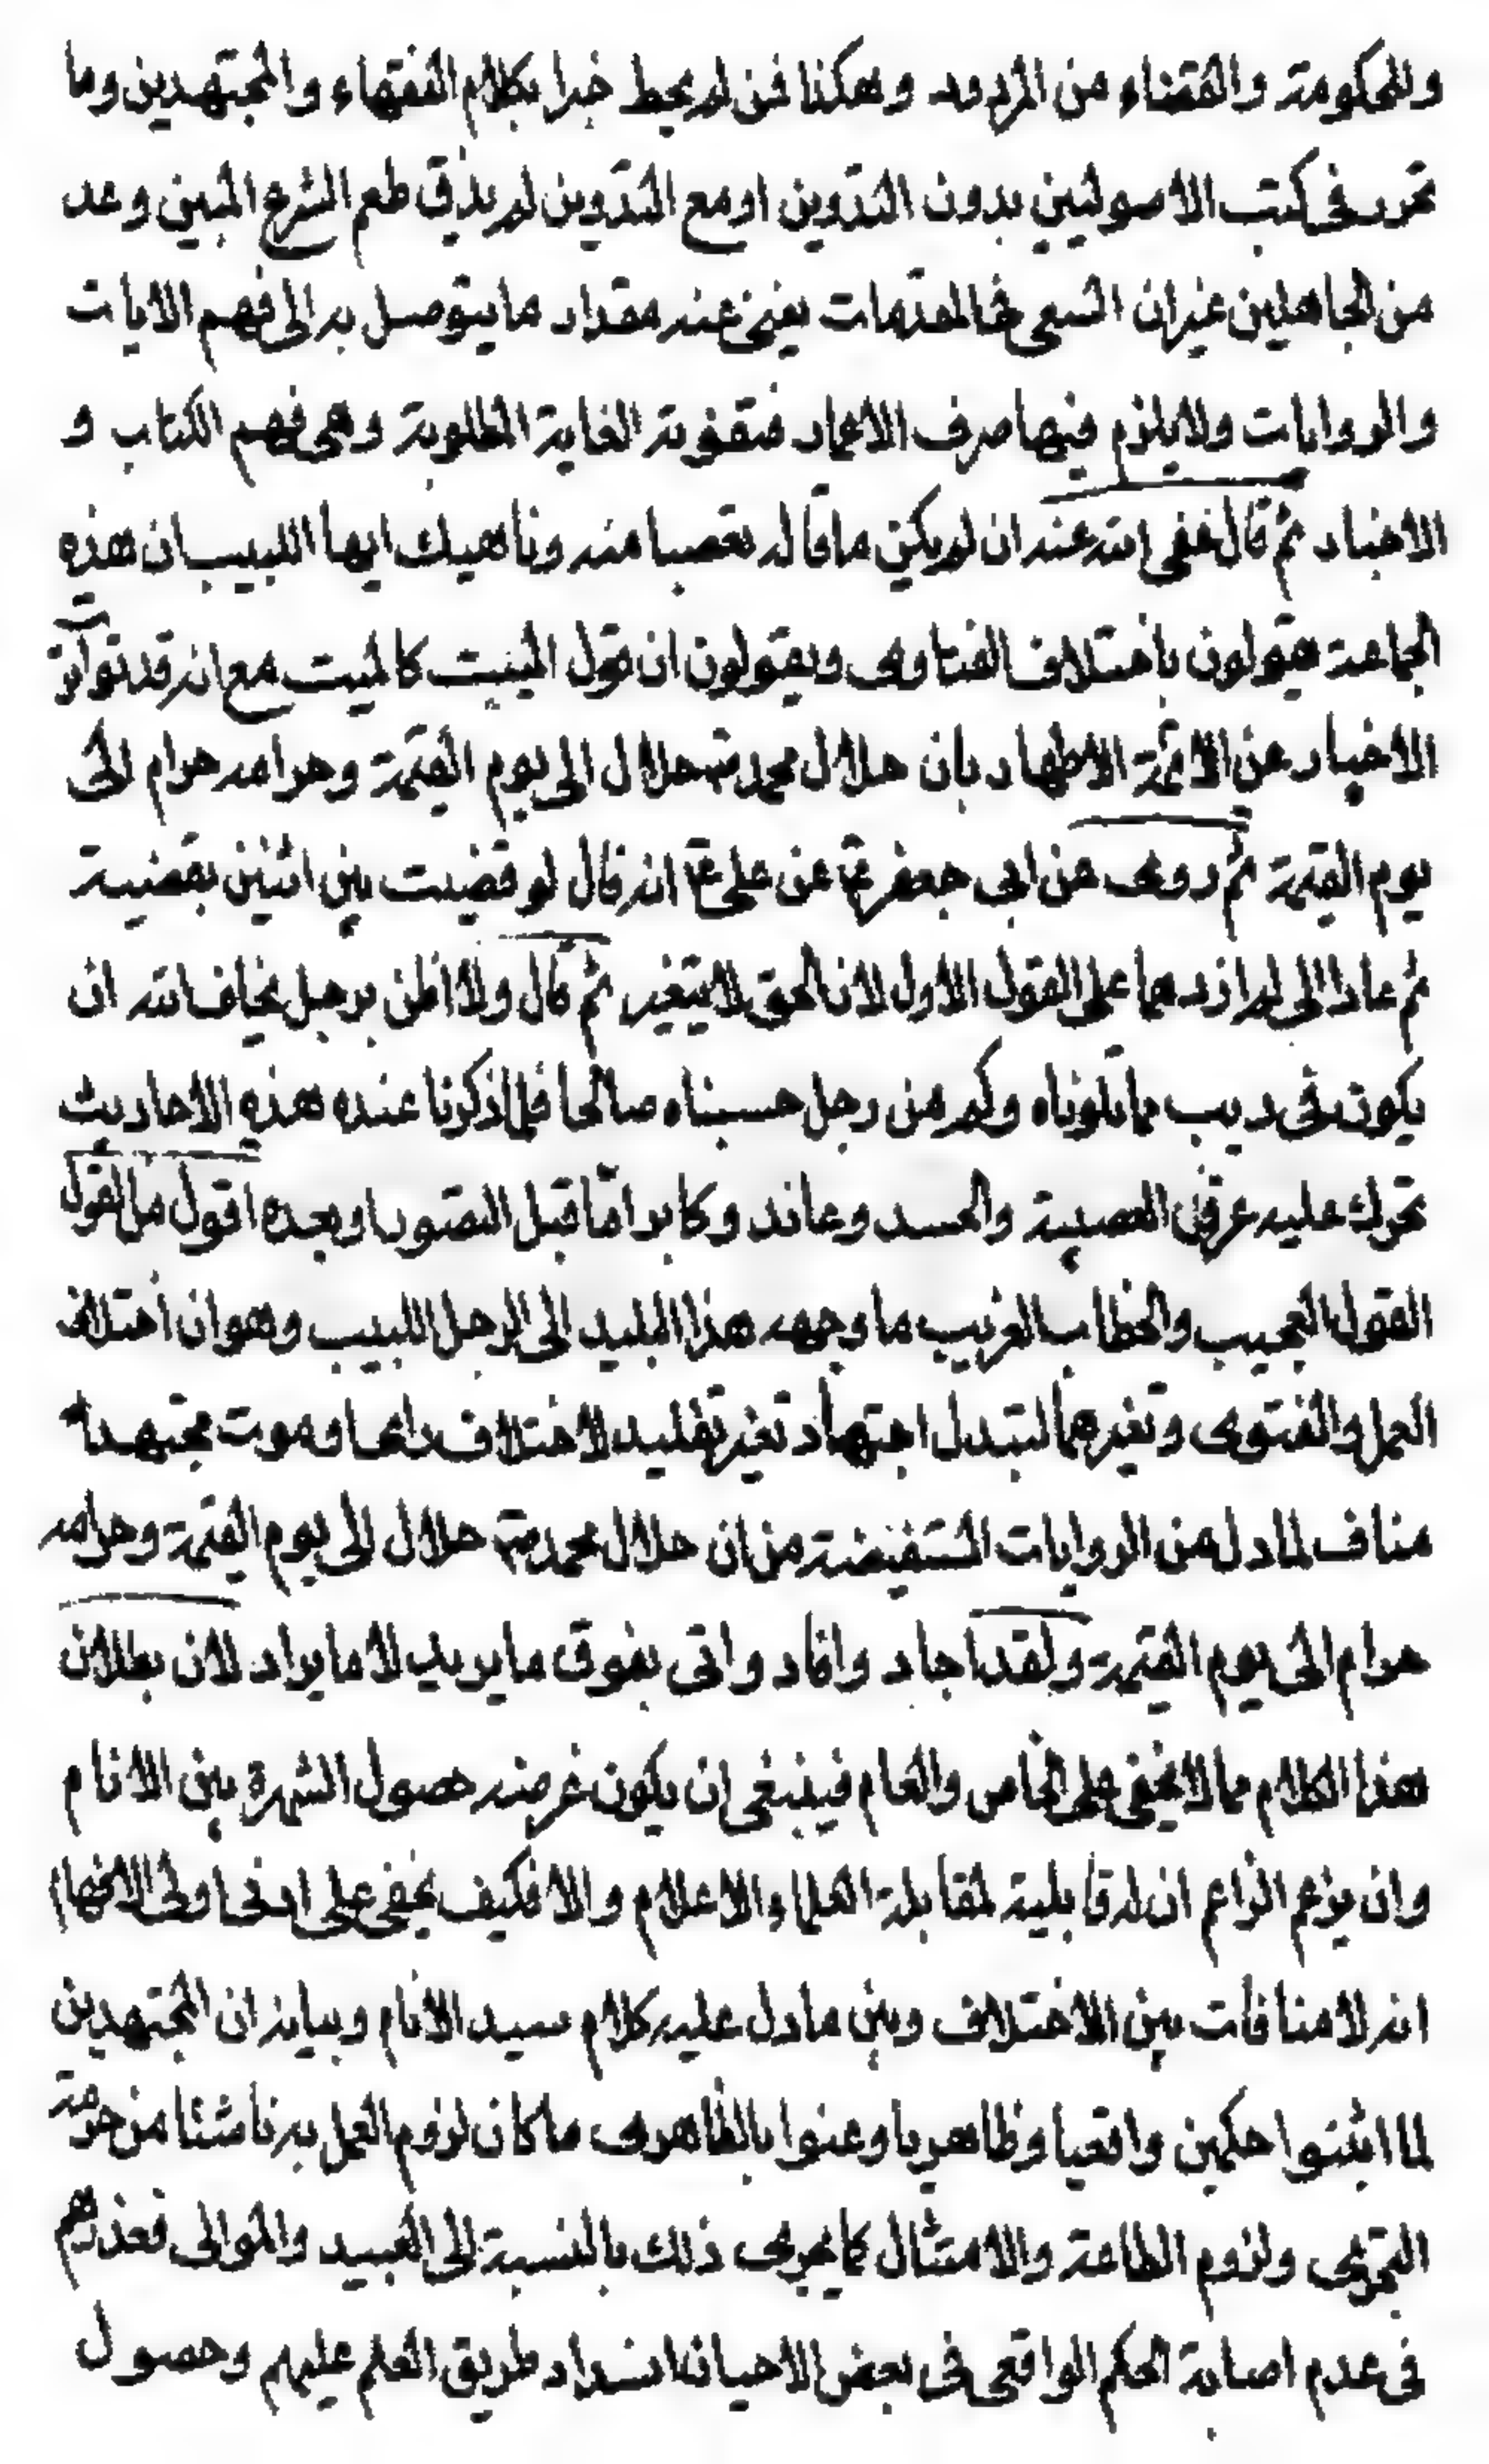 وللحكومة والقضاء من المردود وهكذا فمن لم يحط خبرا بكلام الفقهاء والمجتهدين وما
تحرر في كتب الاصوليين بدون التدوين او مع التدوين لم يذق طعم الشرع المبين وعد
من الجاهلين غير ان السعى في المقدمات يغنى عنه مقدار ما يتوصل به الى فهم الايات
والروايات ولا يلزم فيها صرف الاعمار فتفوته الغاية المطلوبة وهى فهم الكتاب و
الاخبار ثم قال عفى الله عنه ان لم يكن ما قاله تعصبا منه وناهيك ايها اللبيب ان هذه
الجماعة يقولون باختلاف الفتاوى ويقولون ان قول الميت كالميت مع انه قد تواترت
الاخبار عن الائمة الاطهار بان حلال محمد ص حلال الى يوم القيمة وحرامه حرام الى
يوم القيمة ثم روى عن ابى جعفر ع عن على ع انه قال لو قضيت بين اثنين بقضية
ثم عادا الى لم ازدهما على القول الاول لان الحق لا يتغير ثم قال ولا اظن برجل يخاف الله ان
يكون في ريب مما تلوناه وكم من رجل حسبناه صالحا فلما ذكرنا عنده هذه الاحاديث
تحرك عليه عرق العصبية والحسد وعاند وكابر اما قبل التصور او بعده اقول من القول
القول العجيب والخطاب الغريب ما وجهه هذا البليد الى الرجل اللبيب وهو ان اختلاف
العمل والفتوى وتغيرهما لتبدل اجتهاد تغير تقليد لاختلاف او موت مجتهد
مناف لما دل من الروايات المستفيضة من ان حلال محمد ص حلال الى يوم القيمة وحرامه
حرام الى يوم القيمة ولقد اجاد وافاد واتى بفوق ما يريد لا ما يراد لان بطلان
هذا الكلام مما لا يخفى على الخاص والعام فينبغى ان يكون غرضه حصول الشهرة بين الانام
وان يزعم الزاعم ان له قابلية لمقابلة العلماء الاعلام والا فكيف يخفى على ادنى اولى الافهام
انه لا منافات بين الاختلاف وبين ما دل عليه كلام سيد الانام وبيانه ان المجتهدين
لما اثبتوا حكمين واقعيا وظاهريا وعنوا بالظاهرى ما كان لزوم العمل به ناشئا من حرمة
التجرى ولزوم الطاعة والامتثال كما يجرى ذلك بالنسبة الى العبيد والموالى فعذرهم
في عدم اصابة الحكم الواقعى في بعض الاحيان انسداد طريق العلم عليهم وحصول